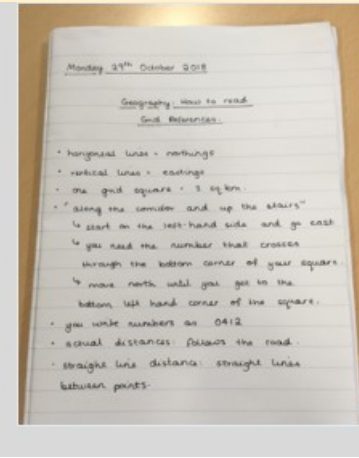 Monday 29th October 2018
Geography: How to read
Grid References.
• horizontal lines = northings
• vertical lines = eastings
• one grid square = 1 sq km.
• "along the corridor and up the stairs"
↳ start on the left-hand side and go east
↳ you need the number that crosses
through the bottom corner of your square.
↳ move north until you get to the
bottom left hand corner of the square.
• you write numbers as 0412
• actual distances: follows the road.
• straight line distance: straight lines
between points.